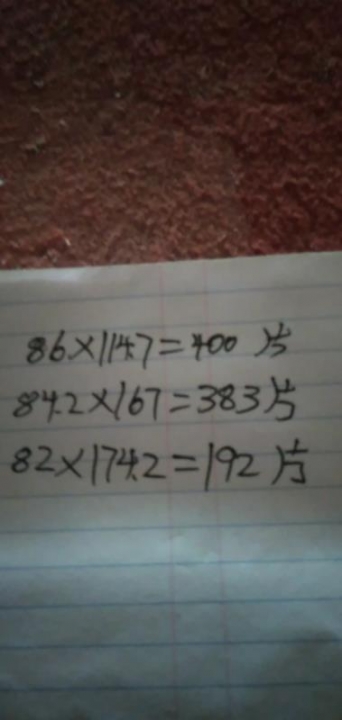 86×114.7=400片
84.2×167=383片
82×174.2=192片